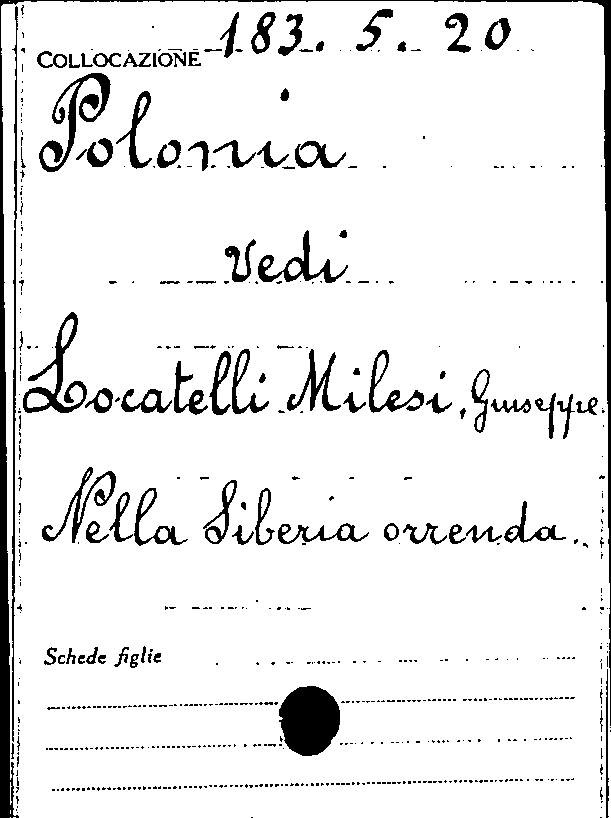 COLLOCAZIONE 183. 5. 20
Polonia
Vedi
Locatelli Milesi, Giuseppe
Nella Siberia orrenda..
Schede figlie